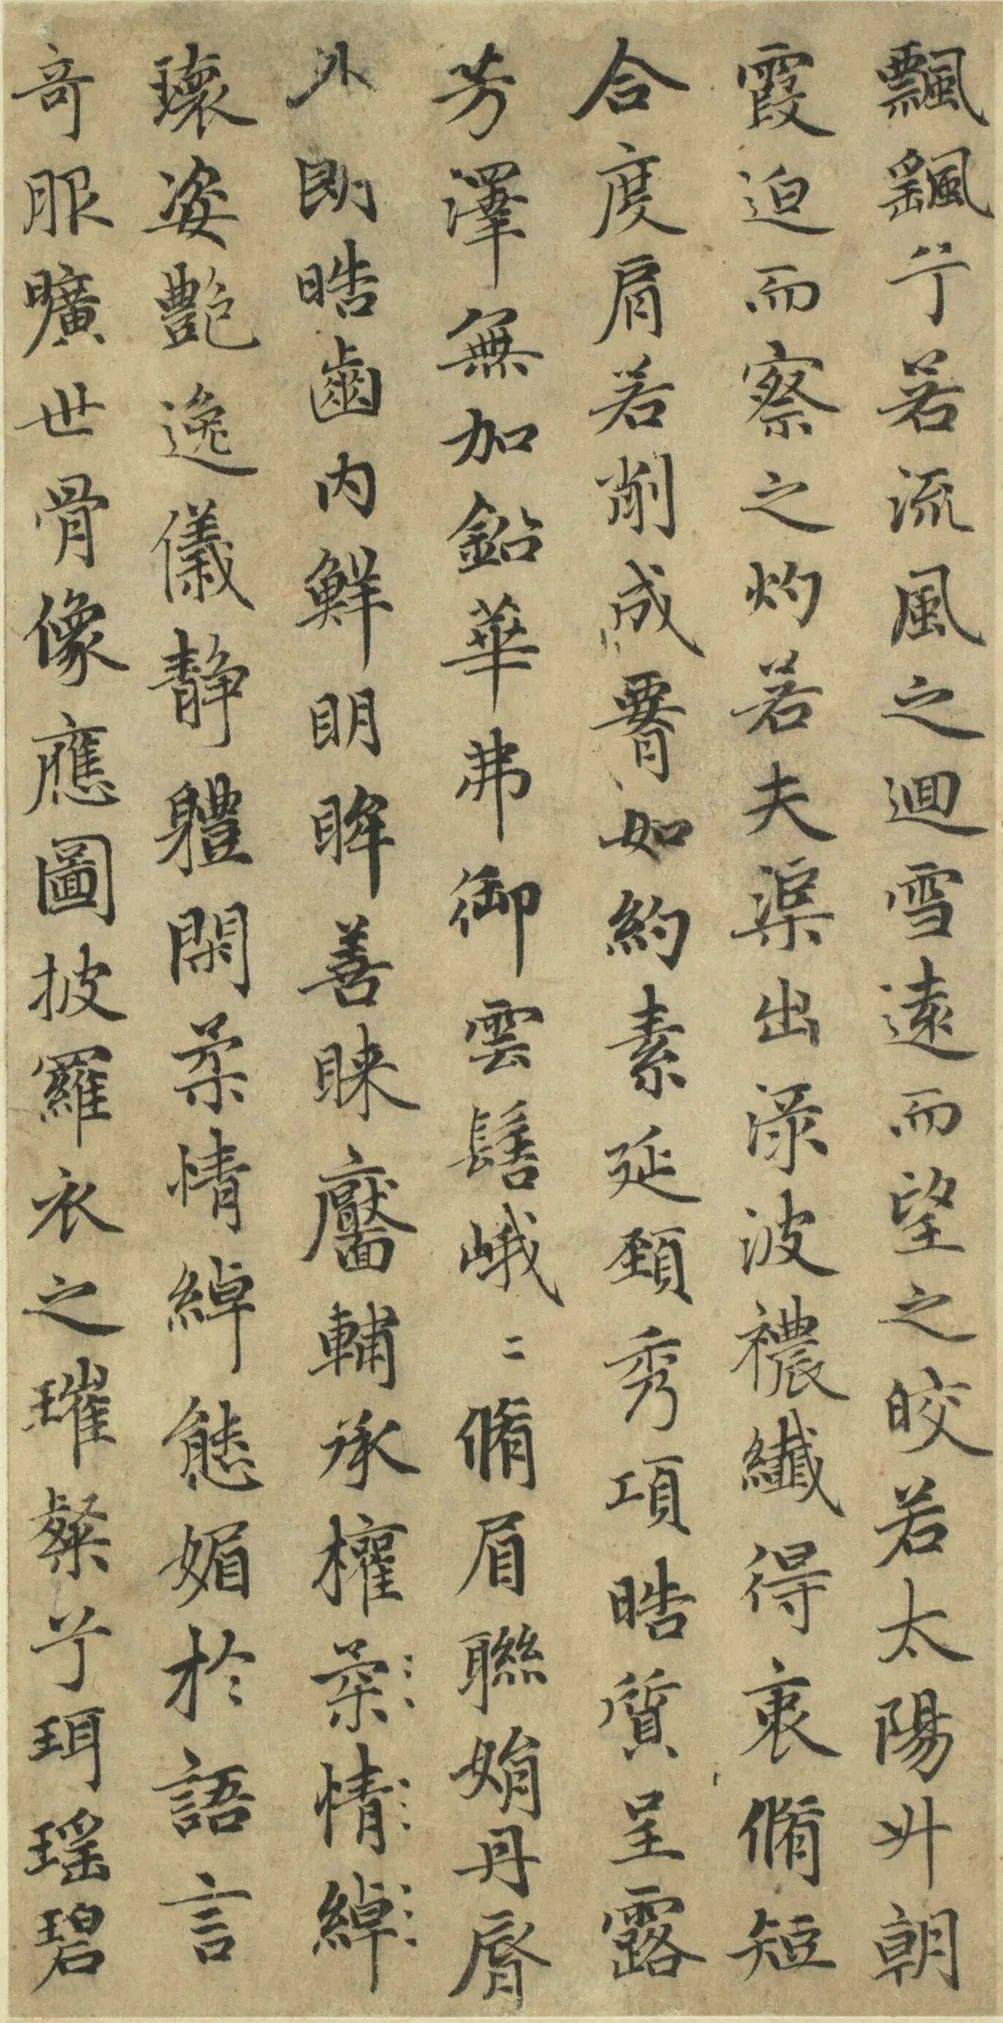 飄颻兮若流風之迴雪遠而望之皎若太陽升朝
霞迫而察之灼若夫渠出淥波襛纖得衷脩短
合度肩若削成腰如約素延頸秀項晧質呈露
芳澤無加鉛華弗御雲髻峨〻脩眉聯娟丹脣
外朗晧齒內鮮明眸善睞靨輔承權柔情綽
瓌姿艷逸儀靜體閑柔情綽態媚於語言
奇服曠世骨像應圖披羅衣之璀粲兮珥瑤碧